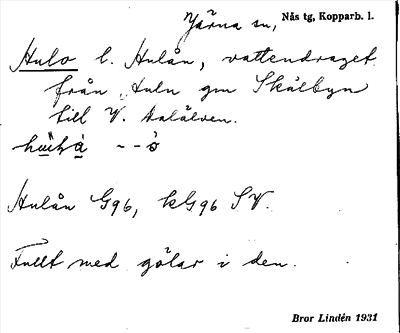 Järna sn, Nås tg, Kopparb. l.
Hulo l. Hulån, vattendraget
från Huln gm Skålbyn
till V. Dalälven.
Hulån G96, kG96 SV.
Fullt med gölar i den.
Bror Lindén 1931